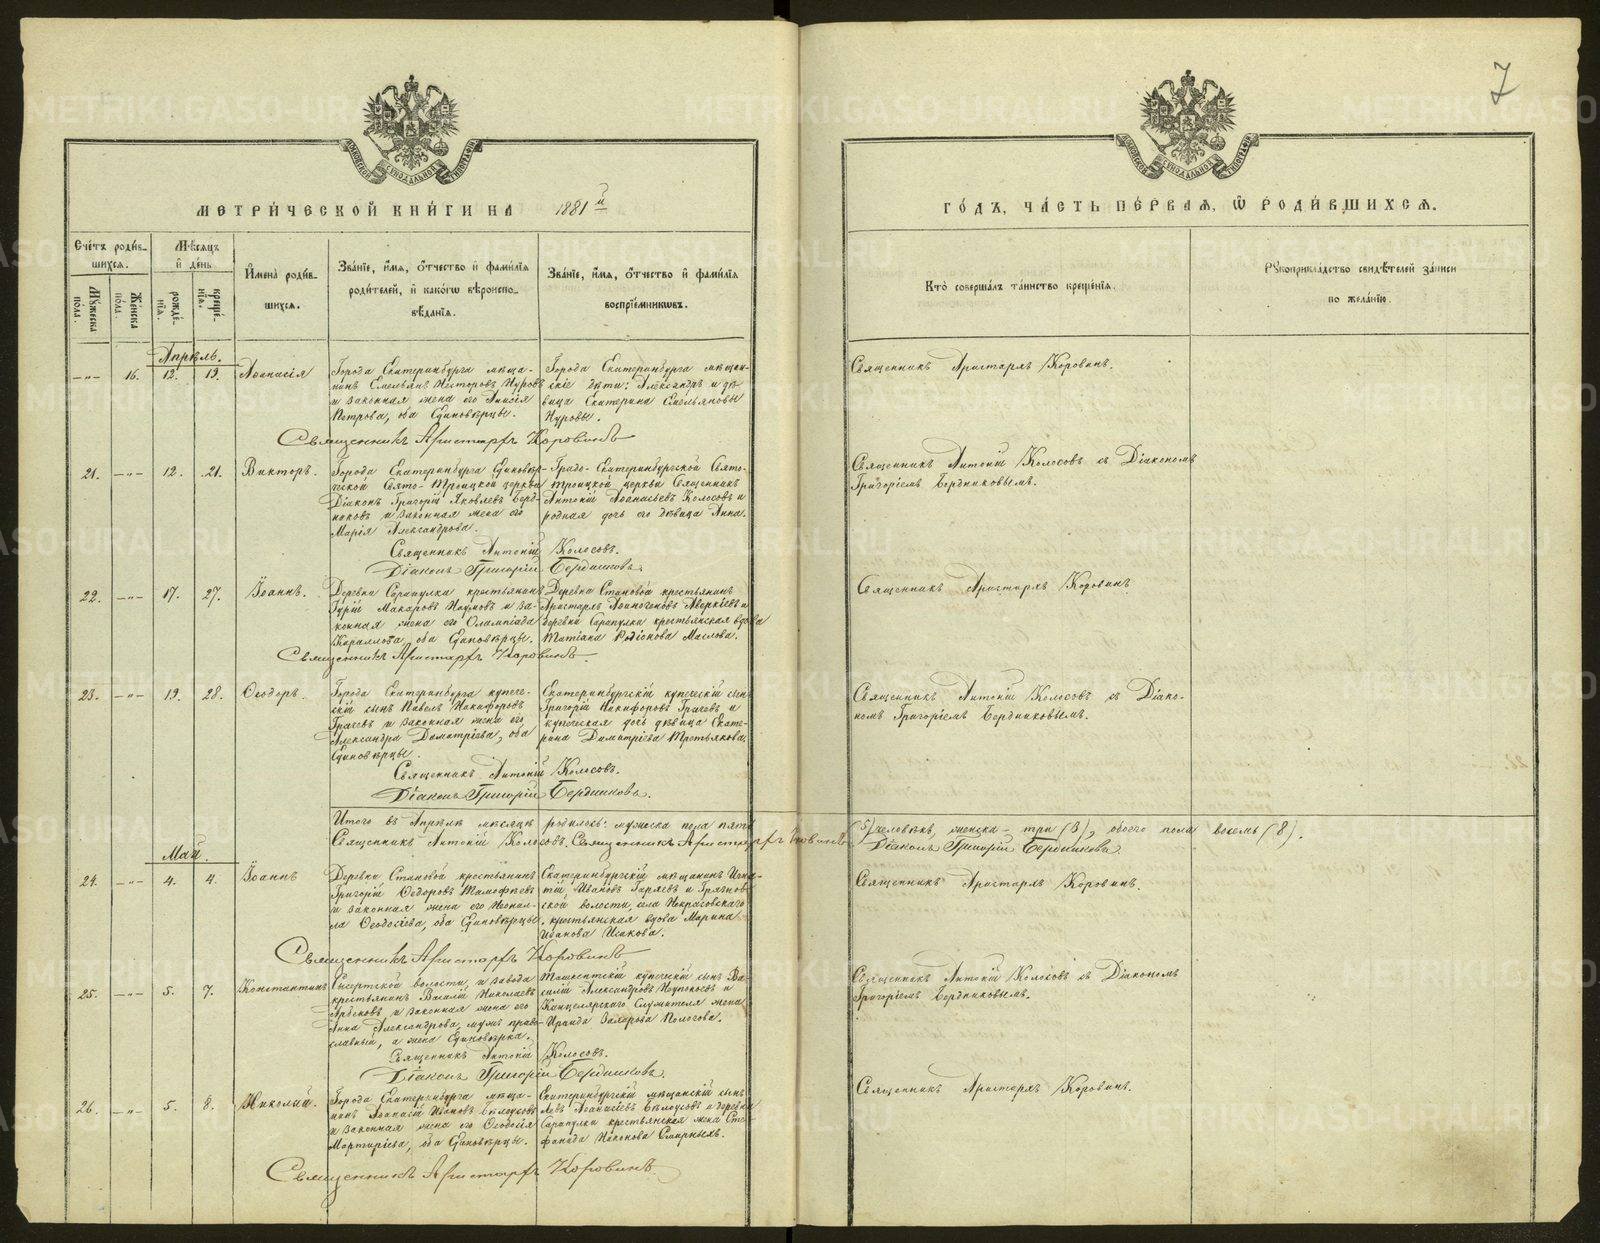 7
МОСКОВСКОЙ СѴНОДАЛЬНОЙ ТИПОГРАФІИ
МЕТРИ́ЧЕСКОЙ КНИ́ГИ НА 1881й
ГО́ДЪ, ЧА́СТЬ ПЕ́РВАЯ, Ѡ РОДИ́ВШИХСЯ.
Сче́тъ роди́вшихся.
Му́жеска пола.
Же́нска пола.
Мѣ́сяцъ и҆ де́нь
рожде́нїя.
креще́нїя.
И҆мена̀ роди́вшихся.
Зва́нїе, и҆́мя, о҆́тчество и҆ фами́лїя роди́телей, и҆ како́гѡ вѣроисповѣ́данїя.
Зва́нїе, и҆́мя, о҆́тчество и҆ фами́лїя воспрїе́мникѡвъ.
Кто̀ соверша́лъ та́инство креще́нїя.
Рꙋкоприкла́дство свидѣ́телей за́писи
по жела́нїю.
Апрѣль.
—„— 16. 12. 19. Аѳанасія
Города Екатеринбурга мѣща-
нинъ Емельянъ Несторовъ Нуровъ
и законная жена его Анисія
Петрова, оба Единовѣрцы.
Города Екатеринбурга мѣщан-
скіе дѣти: Александръ и дѣ-
вица Екатерина Емельяновы
Нуровы.
Священникъ Аристархъ Коровинъ.
Священникъ Аристархъ Коровинъ
21. —„— 12. 21. Викторъ.
Города Екатеринбурга Единовѣр-
ческой Свято-Троицкой церкви
Діаконъ Григорій Яковлевъ Берд-
никовъ и законная жена его
Марія Александрова.
Градо-Екатеринбургской Свято-
Троицкой церкви Священникъ
Антоній Аѳанасьевъ Колосовъ и
родная дочь его дѣвица Анна.
Священникъ Антоній Колосовъ съ Діакономъ
Григоріемъ Бердниковымъ.
Священникъ Антоній Колосовъ.
Діаконъ Григорій Бердниковъ.
22. —„— 17. 27. Іоаннъ.
Деревни Сарапулки крестьянинъ
Гурій Макаровъ Наумовъ и за-
конная жена его Олимпіада
оба Единовѣрцы.
Деревни Становой крестьянинъ
Аристархъ Аѳиногеновъ Аверкіевъ и
деревни Сарапулки крестьянская вдова
Татіана Родіонова Маслова.
Священникъ Аристархъ Коровинъ
Священникъ Аристархъ Коровинъ.
23. —„— 19. 28. Ѳеодоръ.
Города Екатеринбурга купече-
скій сынъ Павелъ Никифоровъ
Грачевъ и законная жена его
Александра Димитріева, оба
Единовѣрцы.
Екатеринбургскій купеческій сынъ
Григорій Никифоровъ Грачевъ и
купеческая дочь дѣвица Екате-
рина Димитріева Третьякова.
Священникъ Антоній Колосовъ съ Діако-
номъ Григоріемъ Бердниковымъ.
Священникъ Антоній Колосовъ.
Діаконъ Григорій Бердниковъ.
Итого въ Апрѣлѣ мѣсяцѣ родилось: мужеска пола пять (5) человѣкъ, женска — три (3), обоего пола восемь (8).
Священникъ Антоній Колосовъ. Священникъ Аристархъ Коровинъ Діаконъ Григорій Бердниковъ
Май.
24. —„— 4. 4. Іоаннъ
Деревни Становой крестьянинъ
Григорій Ѳедоровъ Тимофѣевъ
и законная жена его Неонил-
ла Ѳеодосіева, оба Единовѣрцы.
Екатеринбургскій мѣщанинъ Игна-
тій Ивановъ Гаряевъ и Грязнов-
ской волости, села Некрасовскаго
крестьянская вдова Марина
Иванова Исакова.
Священникъ Аристархъ Коровинъ.
Священникъ Аристархъ Коровинъ
25. —„— 5. 7. Константинъ
Сысертской волости, и завода
крестьянинъ Василій Николаевъ
и законная жена его
Анна Александрова, мужъ право-
славный, а жена Единовѣрка.
Ташкентскій купеческій сынъ Ва-
силій Александровъ и
Канцелярскаго Служителя жена
Ираида Пологова.
Священникъ Антоній Колосовъ съ Діакономъ
Григоріемъ Бердниковымъ.
Священникъ Антоній Колосовъ.
Діаконъ Григорій Бердниковъ.
26. —„— 5. 8. Николай.
Города Екатеринбурга мѣща-
нинъ Аѳанасій Ивановъ Бѣлоусовъ
и законная жена его Ѳеодосія
Мартиріева, оба Единовѣрцы.
Екатеринбургскій мѣщанскій сынъ
Левъ Аѳанасіевъ Бѣлоусовъ и деревни
Сарапулки крестьянская жена Сте-
фанида Иаконова Смирныхъ.
Священникъ Аристархъ Коровинъ.
Священникъ Аристархъ Коровинъ.
METRIKI.GASO-URAL.RU